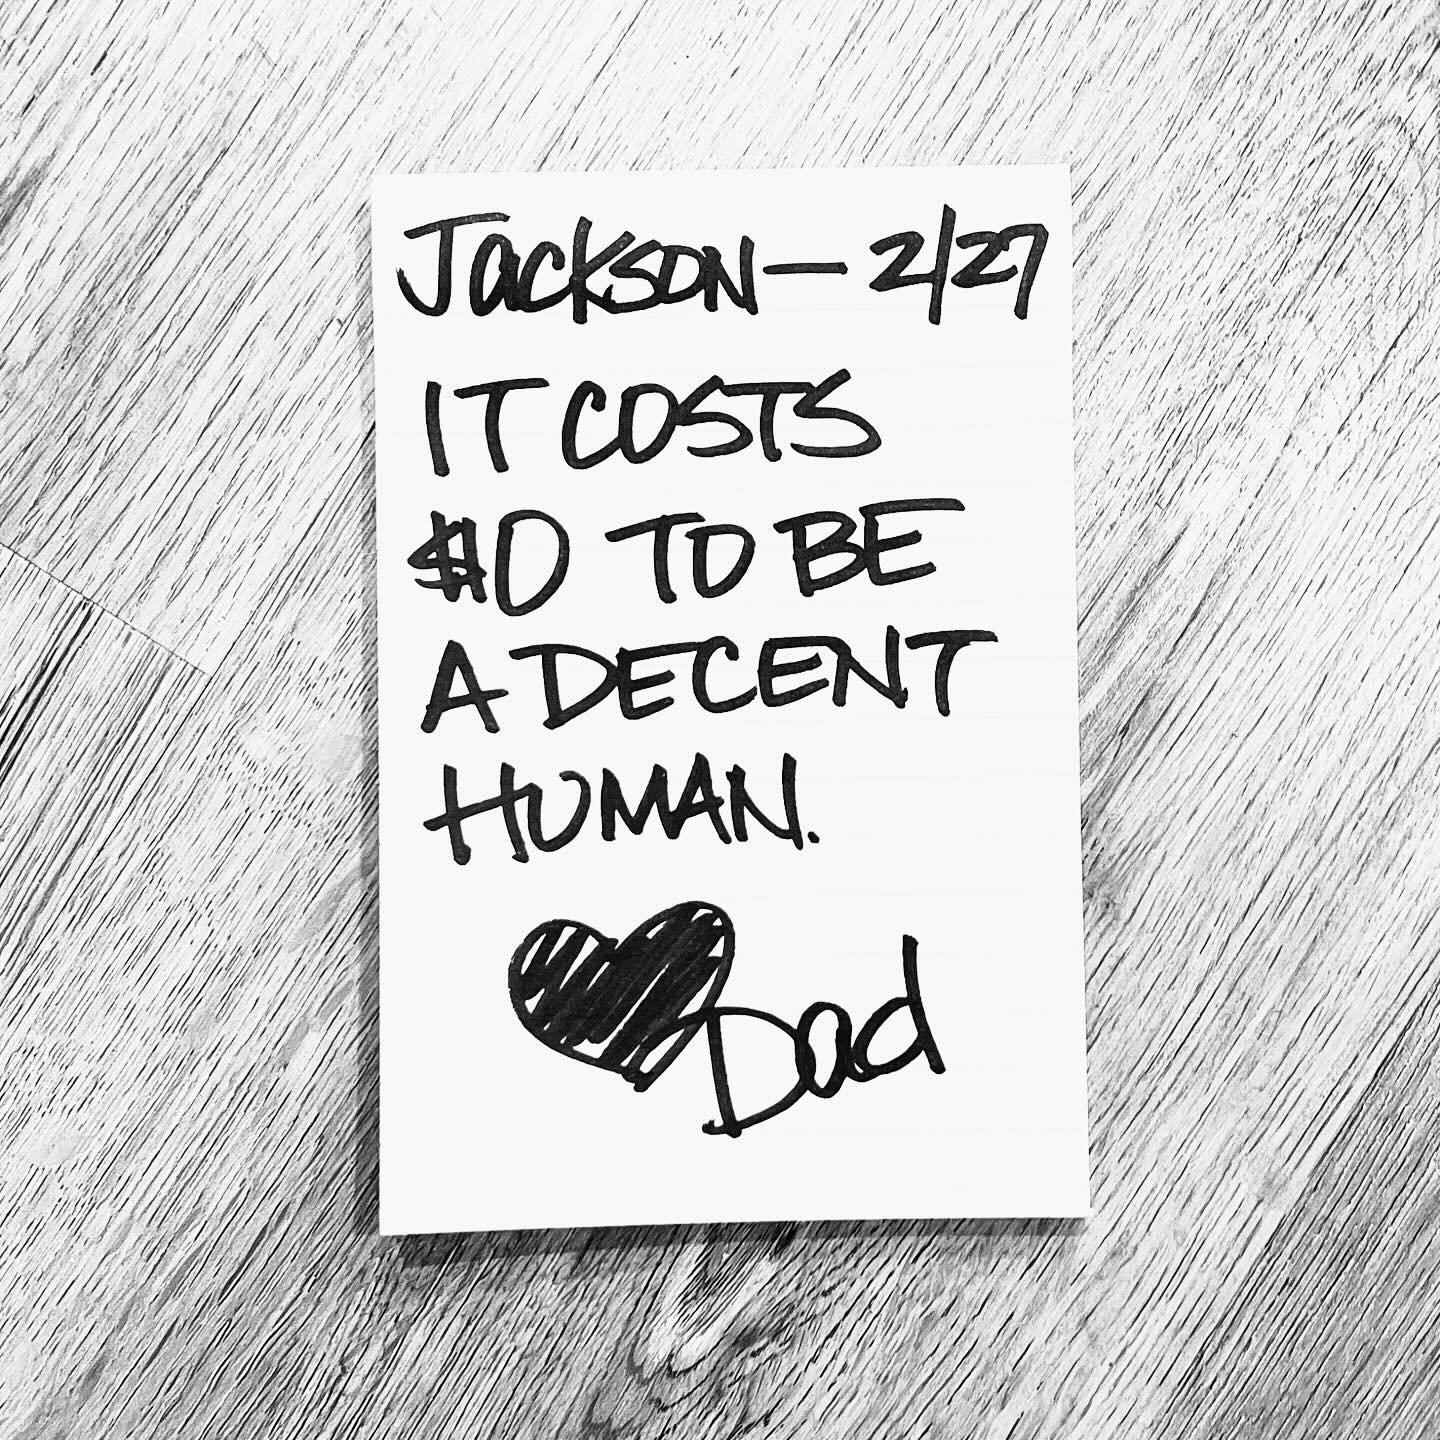 Jackson — 2/27
IT COSTS
$0 TO BE
A DECENT
HUMAN.
Dad